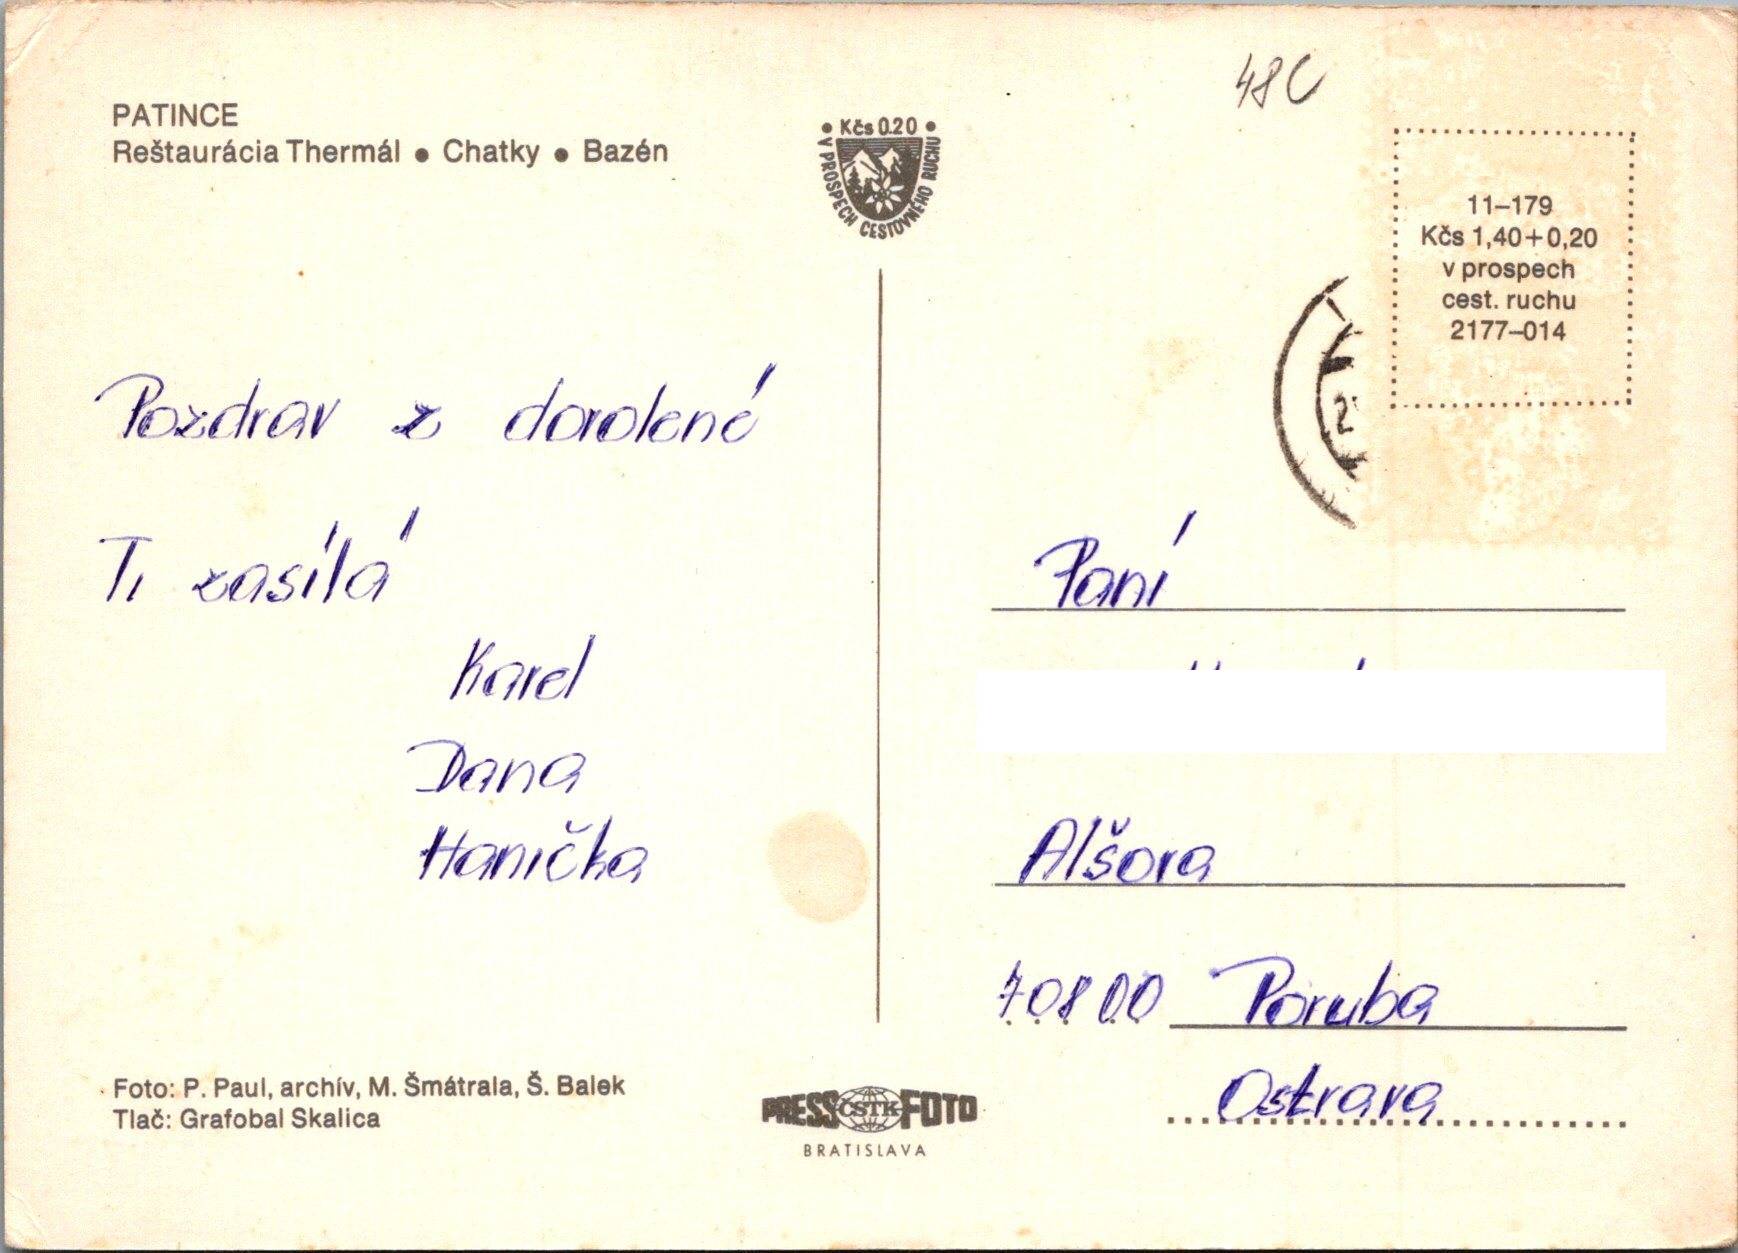 PATINCE
Reštaurácia Thermál • Chatky • Bazén
• Kčs 0.20 •
V PROSPECH CESTOVNÉHO RUCHU
48C
11–179
Kčs 1,40+0,20
v prospech
cest. ruchu
2177–014
Pozdrav z dovolené
Ti zasílá
Karel
Dana
Hanička
Paní
Alšova
70800 Poruba
Ostrava
Foto: P. Paul, archív, M. Šmátrala, Š. Balek
Tlač: Grafobal Skalica
PRESS ČSTK FOTO
BRATISLAVA